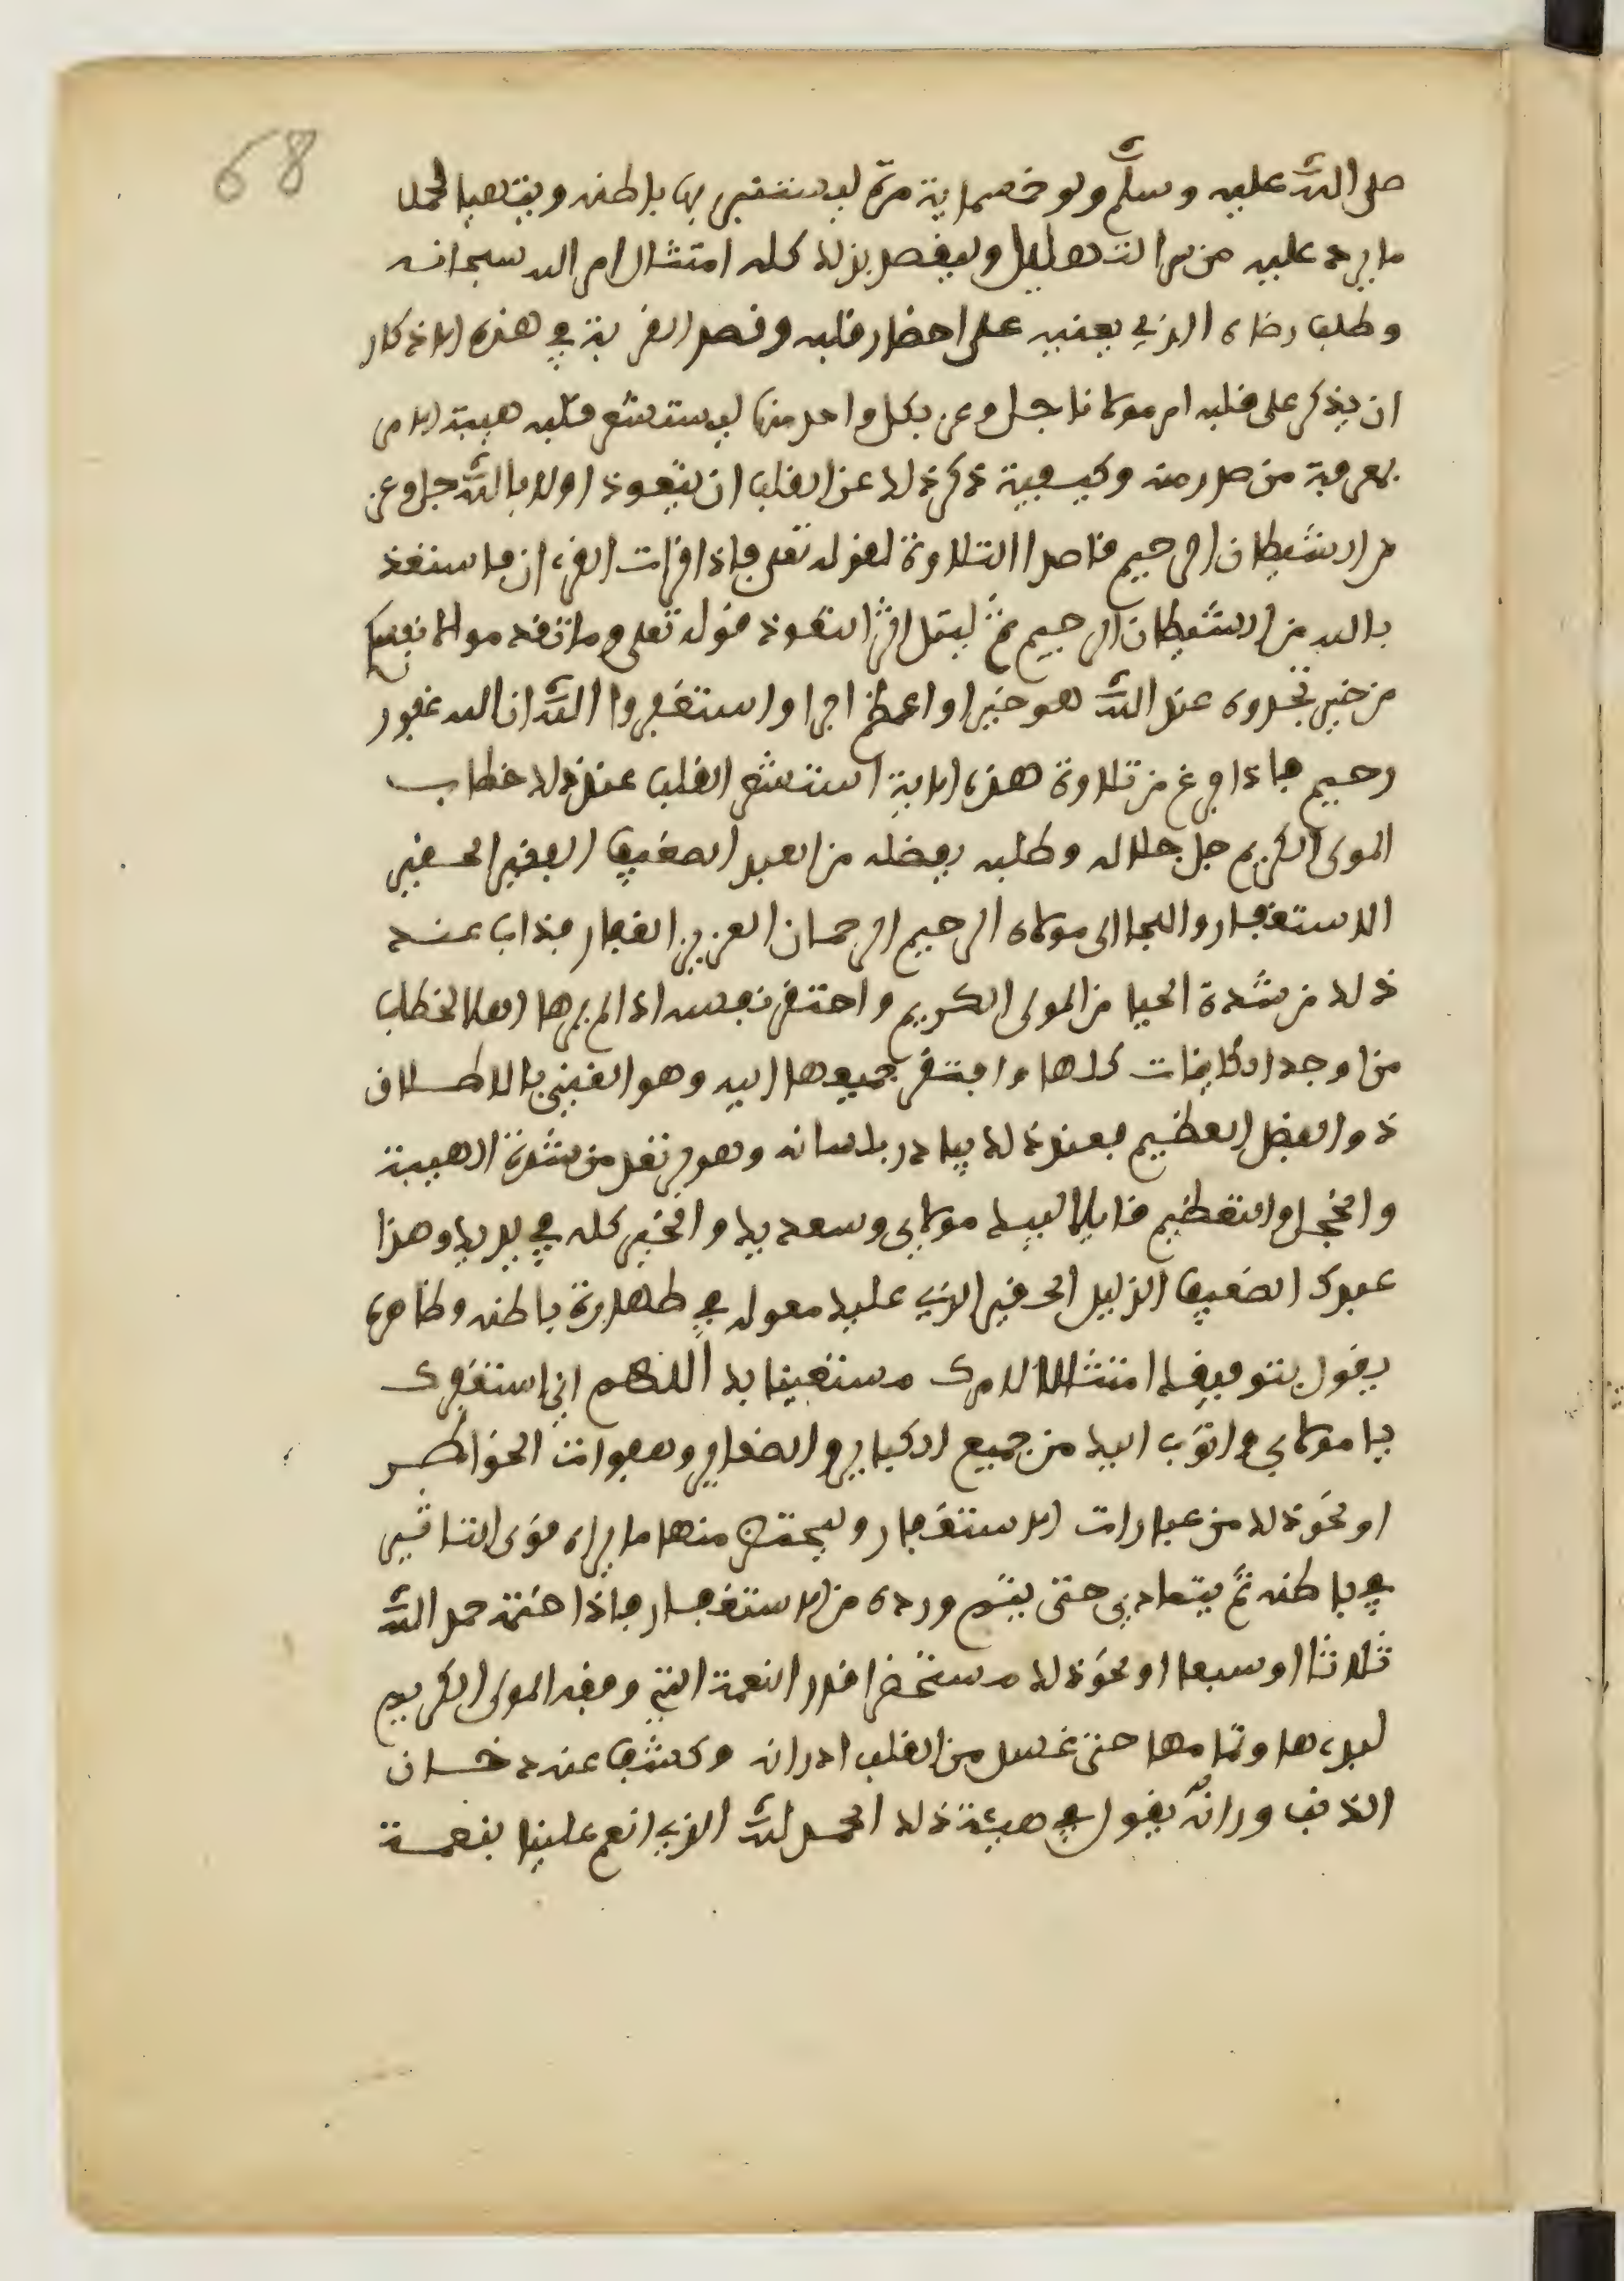 68
صلى الله عليه وسلم ولو خمسماية مرة ليستنير بها باطنه ويتهيا لحمل
ما يرد عليه من سر التهليل وليقصد بذلك كله امتثال امر الله سبحانه
وطلب رضاه الذي يعنيه على احضار قلبه وقصد القربة في هذه الاذكار
ان يذكر على قلبه امر مولانا جل وعز بكل واحد منها ليستشعر قلبه هيبة الامر
بمعرفة من صدر منه وكيفية ذكر ذلك عن القلب ان يتعوذ اولا بالله جل وعز
من الشيطان الرجيم قاصدا التلاوة لقوله تعلى فاذا قرات القرءان فاستعذ
بالله من الشيطان الرجيم ثم ليتل اثر التعوذ قوله تعلى وما تقدموا لانفسكم
من خير تجدوه عند الله هو خيرا واعظم اجرا واستغفروا الله ان الله غفور
رحيم فاذا فرغ من تلاوة هذه الاية استشعر القلب عند ذلك خطاب
المولى الكريم جل جلاله وطلبه بفضله من العبد الضعيف الفقير الحقير
الاستغفار واللجا الى مولاه الرحيم الرحمان العزيز الغفار فذاب عند
ذلك من شدة الحيا من المولى الكريم واحتقر نفسه اذ لم يرها اهلا لخطاب
من اوجد الكاينات كلها وافتقر جميعها اليه وهو الغني بالاطلاق
ذو الفضل العظيم فعند ذلك يبادر بلسانه وهو يرتعد من شدة الهيبة
والخجل والتعظيم قايلا لبيك مولاي وسعديك والخير كله في يديك وهذا
عبدك الضعيف الذليل الحقير الذي عليك معوله في طهارة باطنه وظاهره
يقول بتوفيقك امتثالا لامرك مستعينا بك اللهم اني استغفرك
يا مولاي واتوب اليك من جميع الكباير والصغاير وهفوات الخواطر
او نحو ذلك من عبارات الاستغفار وليختر منها ما يراه قوى التاثير
في باطنه ثم يتمادى حتى يتم ورده من الاستغفار فاذا ختمه حمد الله
ثلاثا او سبعا او نحو ذلك مستحضرا قدر النعمة التي وفقه المولى الكريم
لبدءها وتمامها حتى غسل من القلب ادرانه وكشف عنه دخان
الذنب ورانه يقول في هيئة ذلك الحمد لله الذي انعم علينا بنعمة